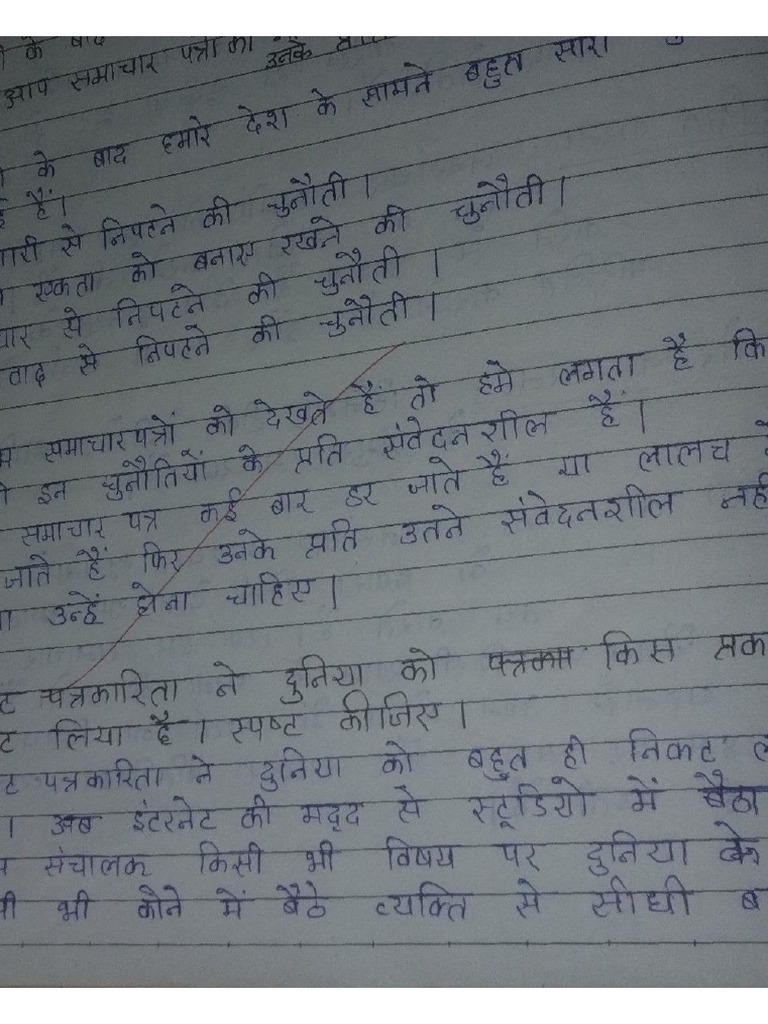 के बाद
आप समाचार पत्रों को उनके
के बाद हमारे देश के सामने बहुत सारी
हैं।
से निपटने की चुनौती।
एकता को बनाए रखने की चुनौती।
से निपटने की चुनौती।
वाद से निपटने की चुनौती।
समाचारपत्रों को देखते हैं तो हमे लगता है कि
इन चुनौतियों के प्रति संवेदनशील हैं।
समाचार पत्र कई बार डर जाते हैं या लालच
जाते हैं फिर उनके प्रति उतने संवेदनशील नहीं
उन्हें होना चाहिए।
पत्रकारिता ने दुनिया को किस
लिया है। स्पष्ट कीजिए।
पत्रकारिता ने दुनिया को बहुत ही निकट
। अब इंटरनेट की मदद से स्टूडियो में बैठा
संचालक किसी भी विषय पर दुनिया के
भी कौने में बैठे व्यक्ति से सीधी